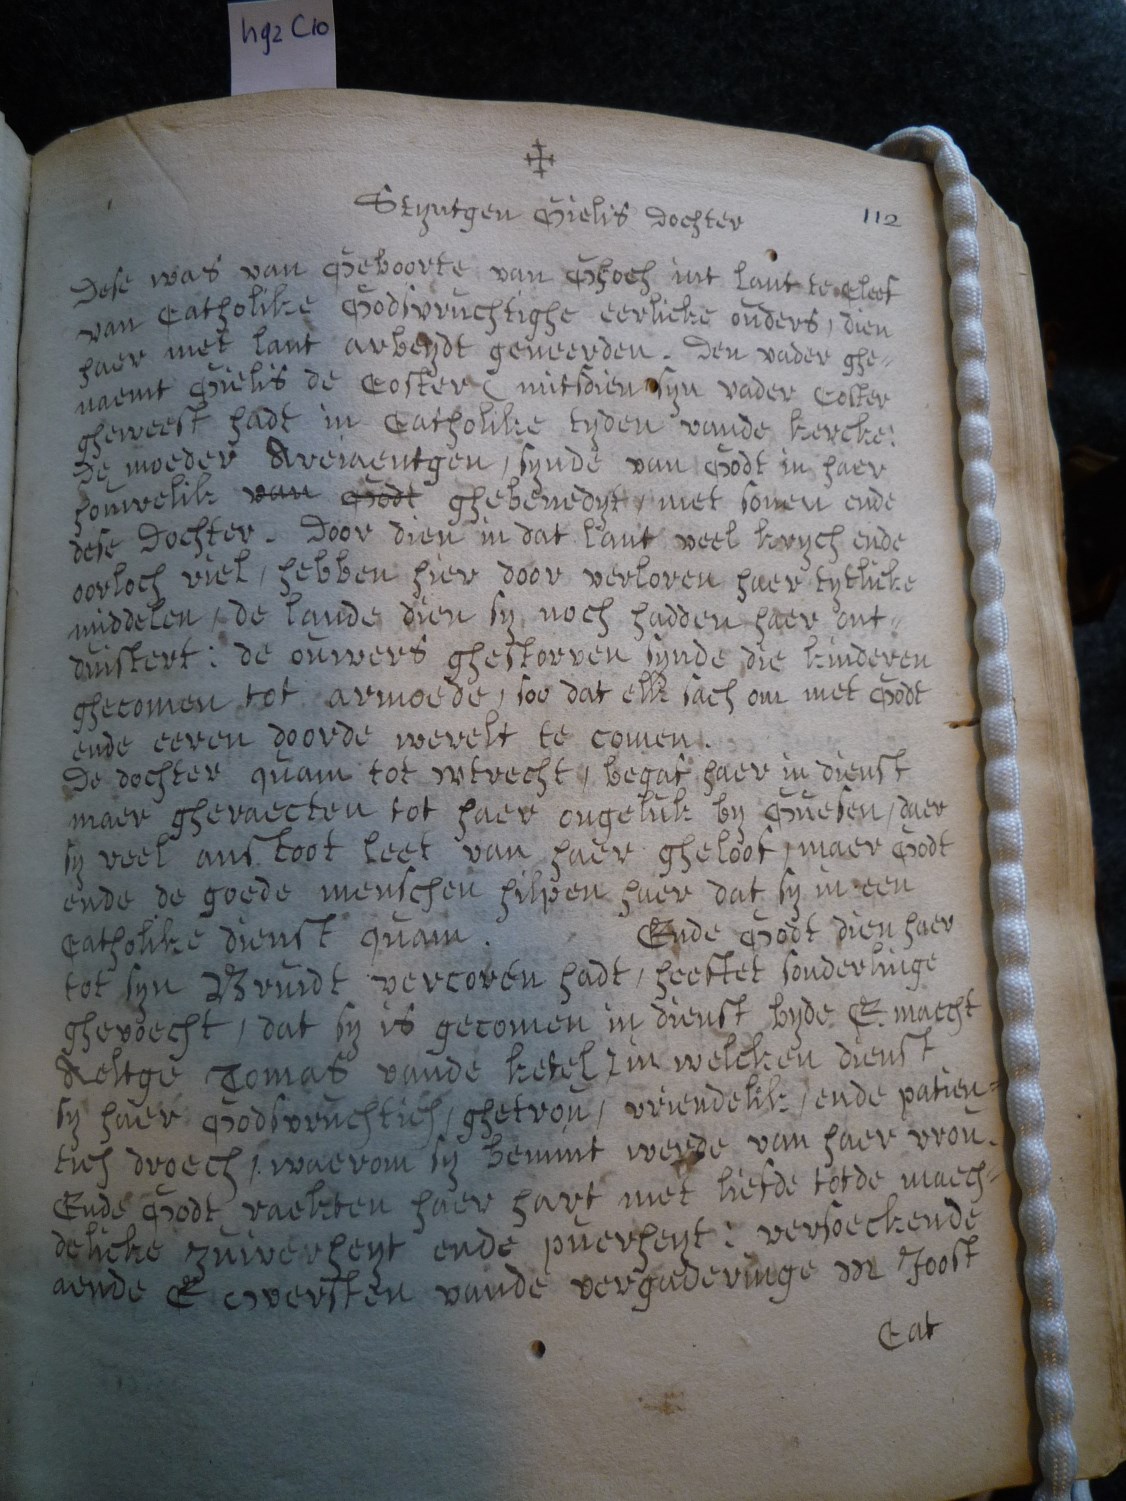 hgz C10
Stijntgen Gielis dochter 112
Dese was van Geboorte van Ghoch int lant te Cleef
van Catholike Godtvruchtighe eerlicke ouders, dien
haer met lant arbeijdt geneerden. Den vader ghe-
naemt Gielis de Coster (mitsdien sijn vader Coster
gheweest hadt in Catholike tijden vande kercke:
De moeder Areiaentgen, sijnde van Godt in haer
houwelik van Godt ghebenedijt, met sonen ende
dese Dochter. Door dien in dat lant veel krijch ende
oorloch viel, hebben hier door verloren haer tijtlicke
middelen, de lande dien sij noch hadden haer ont-
duistert: de ouwers ghestorven sijnde die kinderen
ghecomen tot armoede, soo dat elk sach om met Godt
ende eeren doorde werelt te comen.
De dochter quam tot wtrecht, begaf haer in dienst
maer gheraecten tot haer ongeluk bij Guesen, daer
sij veel anstoot leet van haer gheloof, maer Godt
ende de goede menschen hilpen haer dat sij in een
Catholike dienst quam. Ende Godt dien haer
tot sijn Bruidt vercoren hadt, heeftet sonderlinge
ghevoecht, dat sij is gecomen in dienst bijde E. macht
Aeltge Tomas vande ketel, in welcken dienst
sij haer Godsvruchtich, ghetrou, vriendelik, ende patien-
tich droech, waerom sij bemint werde van haer vrou.
Ende Godt raekten haer hart met liefde totde maech-
delicke zuiverheijt ende puerheijt: versoeckende
aende E overstен vande vergaderinge M Joost
Cat